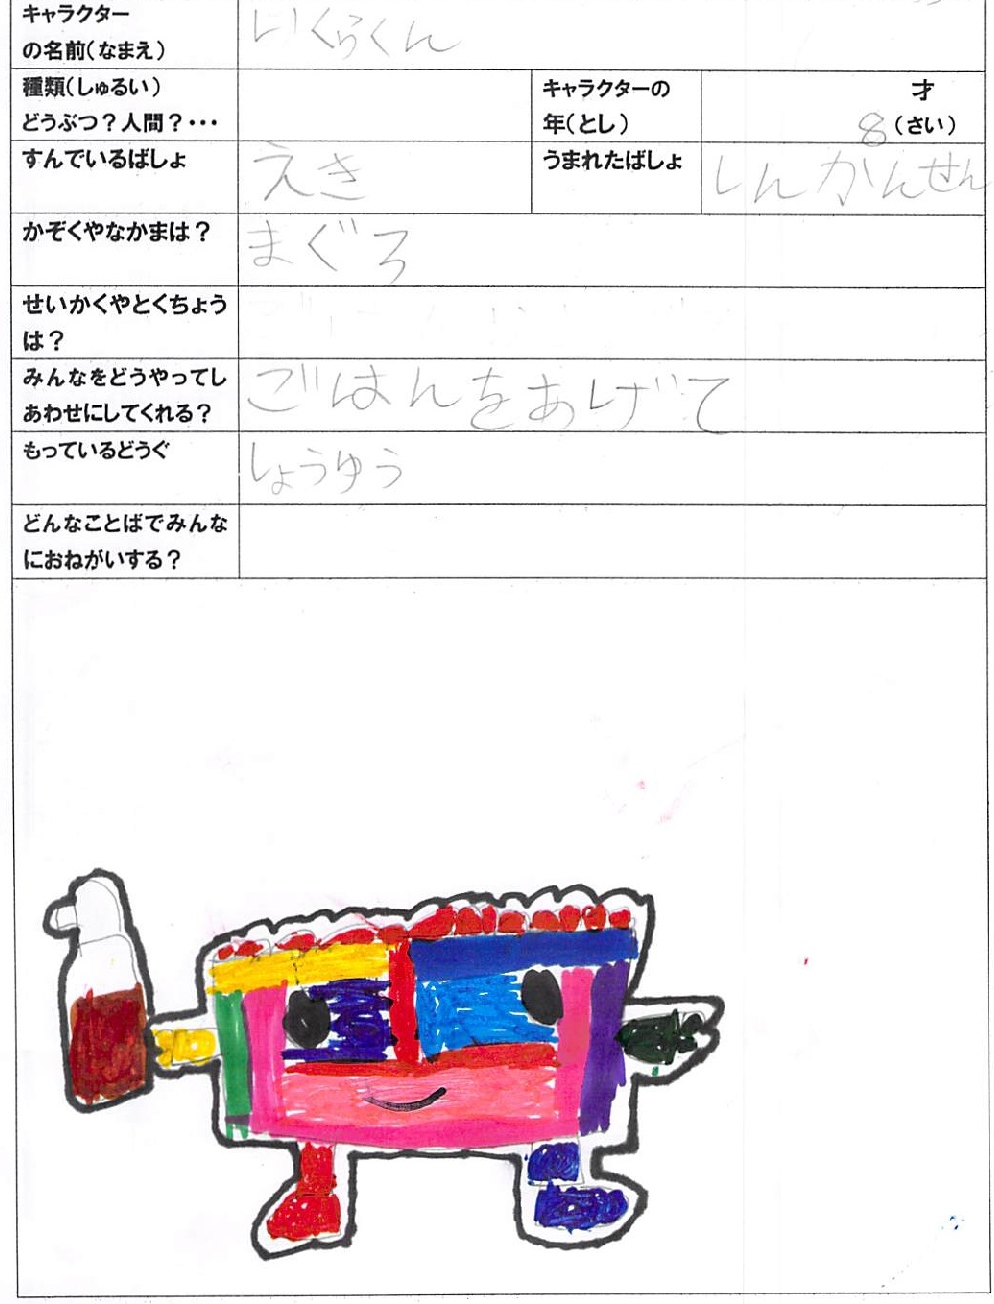 キャラクター
の名前(なまえ)
いくらくん
種類(しゅるい)
どうぶつ?人間?・・・
キャラクターの
年(とし)
才
8(さい)
すんでいるばしょ
えき
うまれたばしょ
しんかんせん
かぞくやなかまは?
まぐろ
せいかくやとくちょう
は?
みんなをどうやってし
あわせにしてくれる?
ごはんをあげて
もっているどうぐ
しょうゆう
どんなことばでみんな
におねがいする?